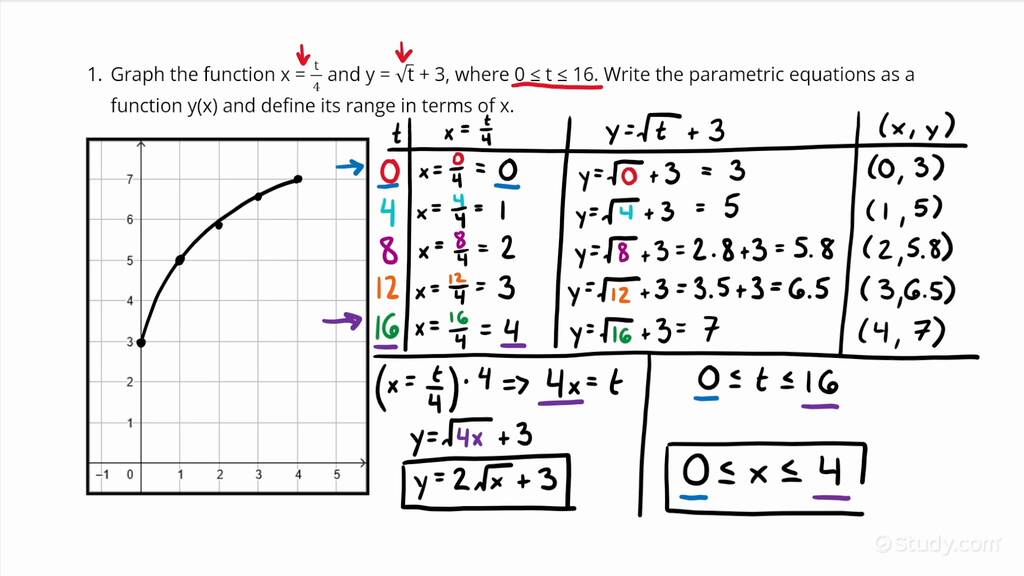 1. Graph the function x = t/4 and y = √t + 3, where 0 ≤ t ≤ 16. Write the parametric equations as a
function y(x) and define its range in terms of x.
t x = t/4 y = √t + 3 (x, y)
0 x = 0/4 = 0 y = √0 + 3 = 3 (0, 3)
4 x = 4/4 = 1 y = √4 + 3 = 5 (1, 5)
8 x = 8/4 = 2 y = √8 + 3 = 2.8 + 3 = 5.8 (2, 5.8)
12 x = 12/4 = 3 y = √12 + 3 = 3.5 + 3 = 6.5 (3, 6.5)
16 x = 16/4 = 4 y = √16 + 3 = 7 (4, 7)
7
6
5
4
3
2
1
−1 0 1 2 3 4 5
(x = t/4) · 4 => 4x = t
y = √4x + 3
y = 2√x + 3
0 ≤ t ≤ 16
0 ≤ x ≤ 4
Study.com